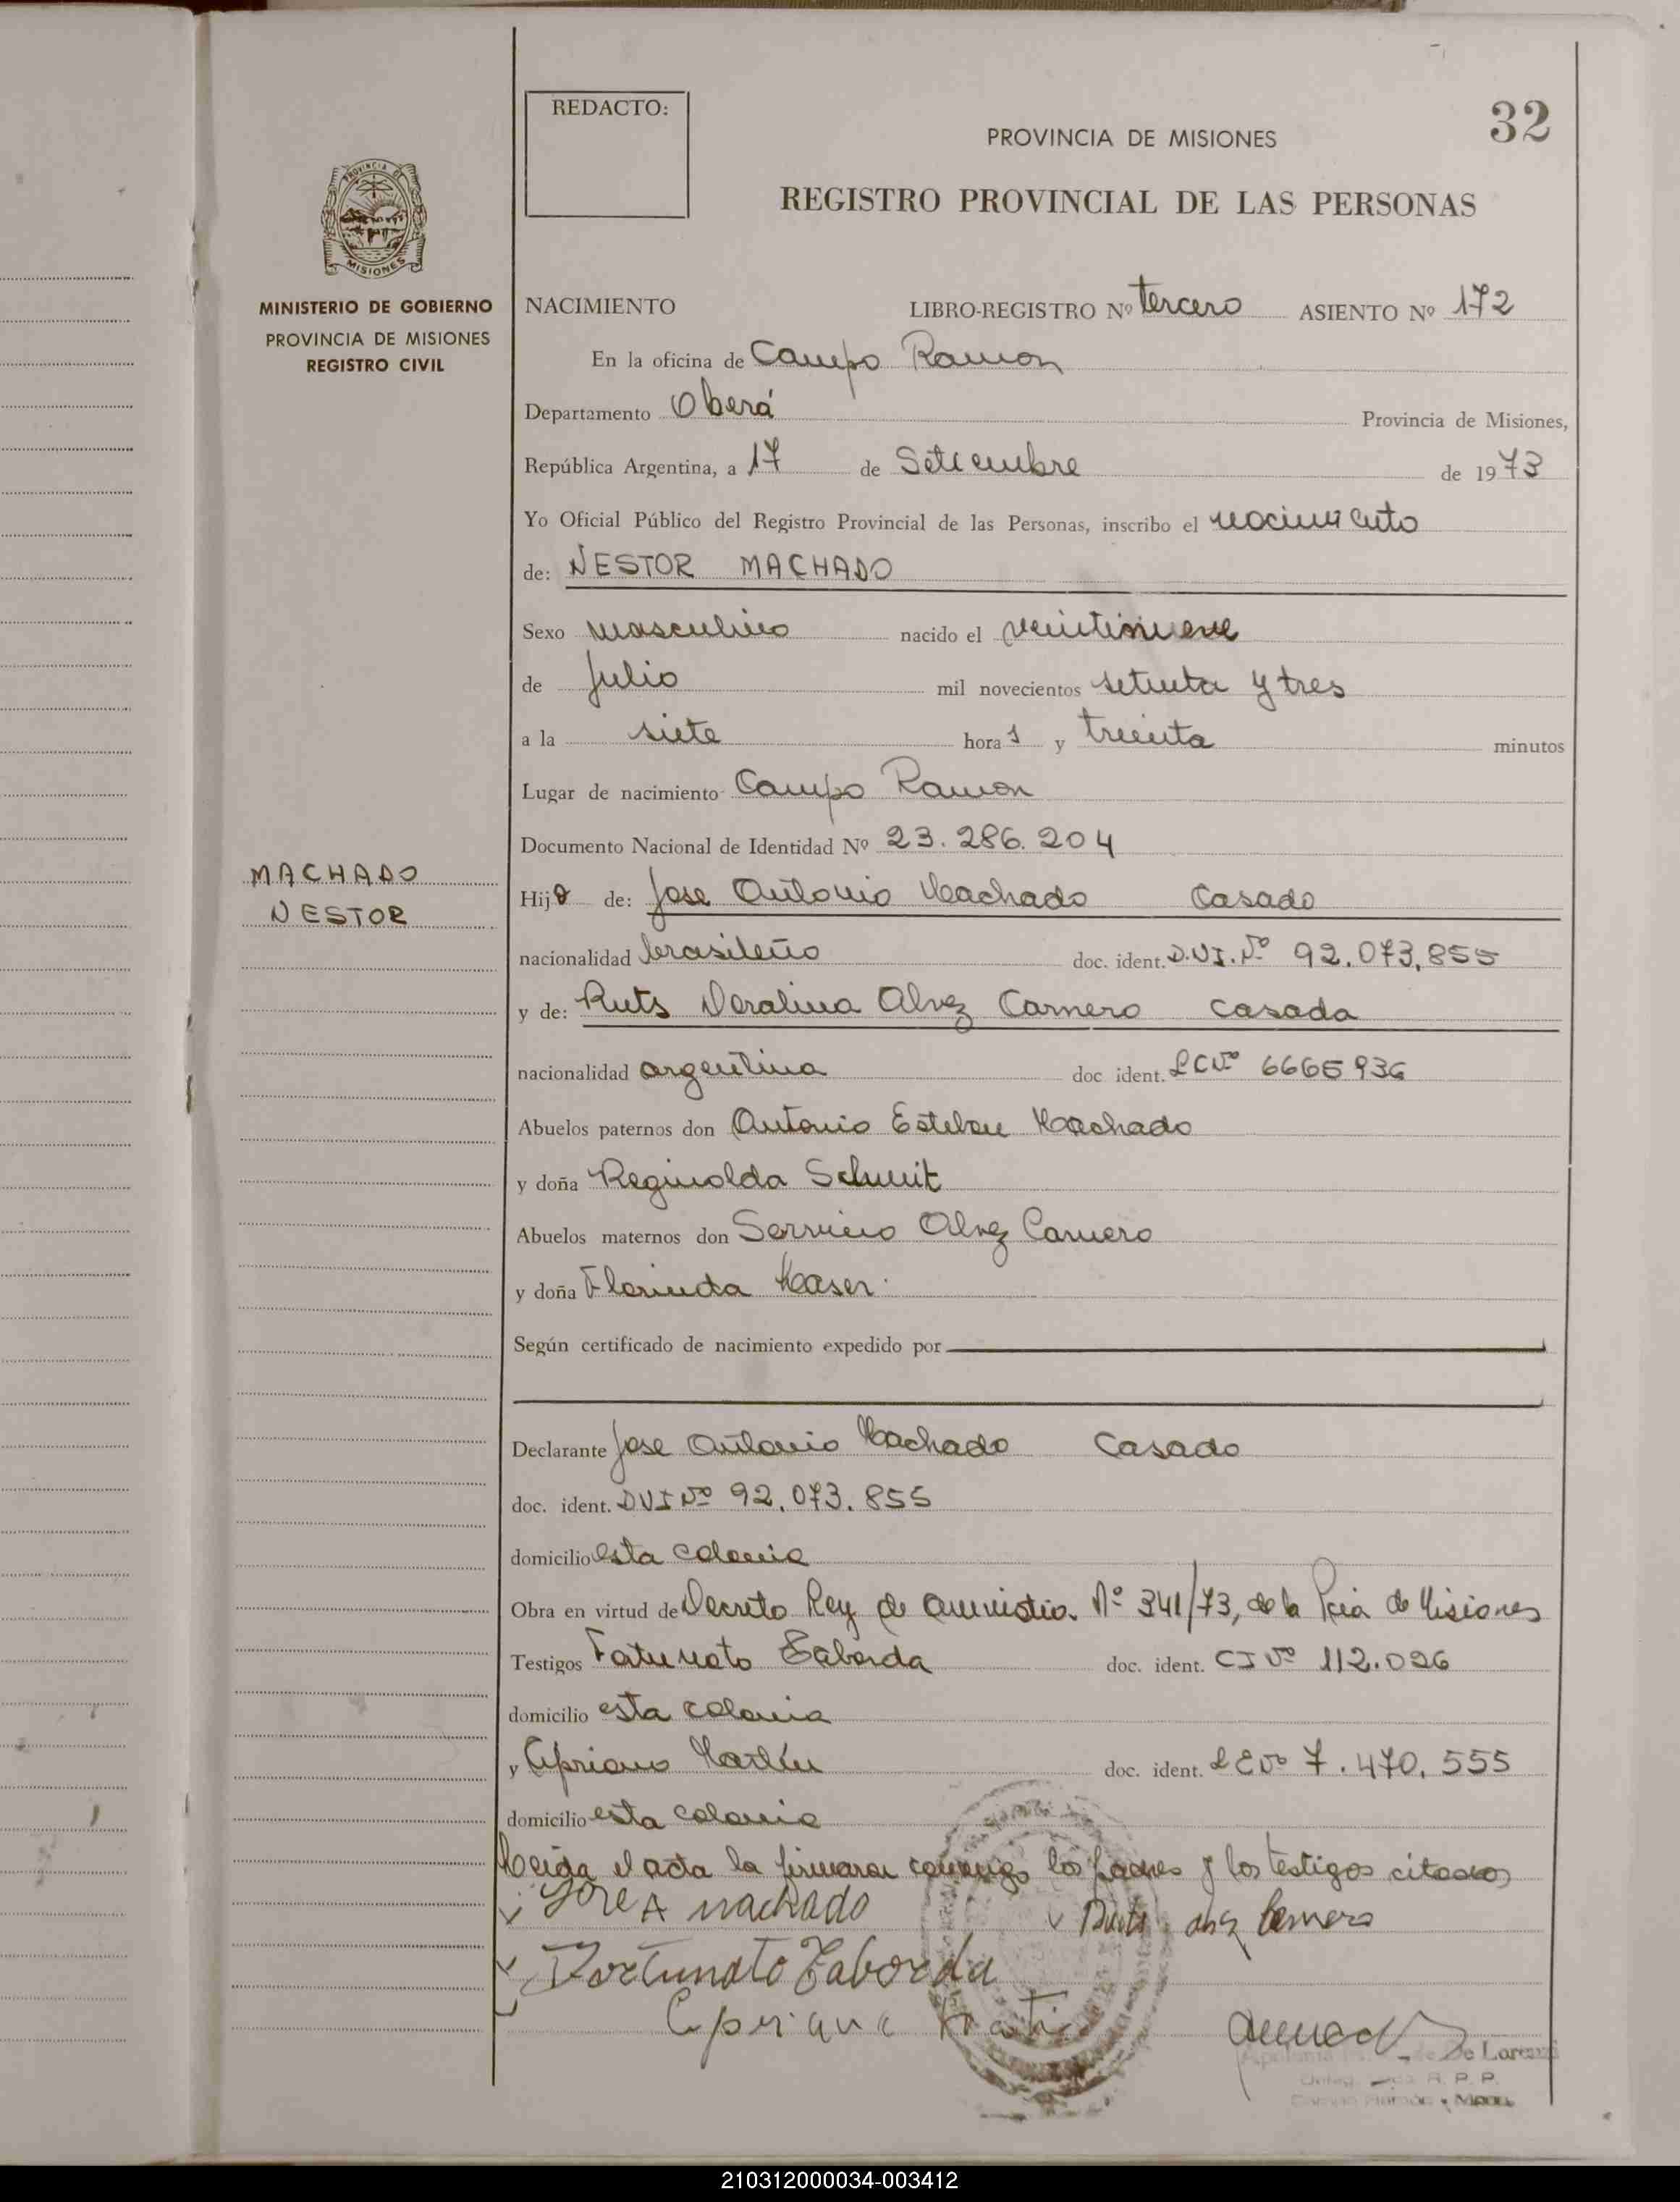 REDACTO:
32
PROVINCIA DE MISIONES
REGISTRO PROVINCIAL DE LAS PERSONAS
PROVINCIA DE
MISIONES
MINISTERIO DE GOBIERNO
PROVINCIA DE MISIONES
REGISTRO CIVIL
NACIMIENTO LIBRO-REGISTRO Nº tercero ASIENTO Nº 172
En la oficina de Campo Ramon
Departamento Oberá Provincia de Misiones,
República Argentina, a 17 de Setiembre de 1973
Yo Oficial Público del Registro Provincial de las Personas, inscribo el nacimiento
de: NESTOR MACHADO
Sexo masculino nacido el veintinueve
de Julio mil novecientos setenta y tres
a la siete horas y treinta minutos
Lugar de nacimiento Campo Ramon
Documento Nacional de Identidad Nº 23.286.204
MACHADO
NESTOR
Hijo de: Jose Antonio Machado Casado
nacionalidad brasileño doc. ident. D.N.I. Nº 92.073,855
y de: Ruts Deralina Alvez Carnero casada
nacionalidad argentina doc ident. LC Nº 6665936
Abuelos paternos don Antonio Esteban Machado
y doña Reginolda Schmit
Abuelos maternos don Servino Alvez Carnero
y doña Florinda Maser
Según certificado de nacimiento expedido por
Declarante Jose Antonio Machado Casado
doc. ident. DNI Nº 92.073.855
domicilio esta colonia
Obra en virtud de Decreto Ley de amnistia Nº 341/73, de la Pcia de Misiones
Testigos Fatunato Taborda doc. ident. CI Nº 112.026
domicilio esta colonia
y Cipriano Martín doc. ident. LE Nº 7.470.555
domicilio esta colonia
Leida el acta la firmaron conmigo los padres y los testigos citados
Jose A machado Ruts alvez Carnero
Fortunato Taborda
Cipriano
De Lorenzi
R. P. P.
210312000034-003412